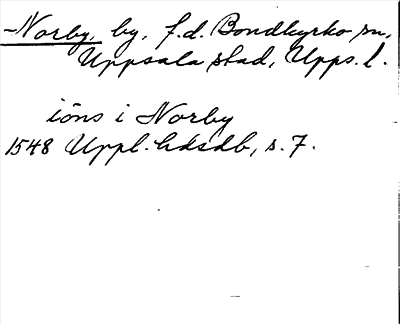 -Norby, by, f.d. Bondkyrko sn,
Uppsala stad, Upps. l.
iöns i Norby
1548 Uppl. hdsdb, s. 7.